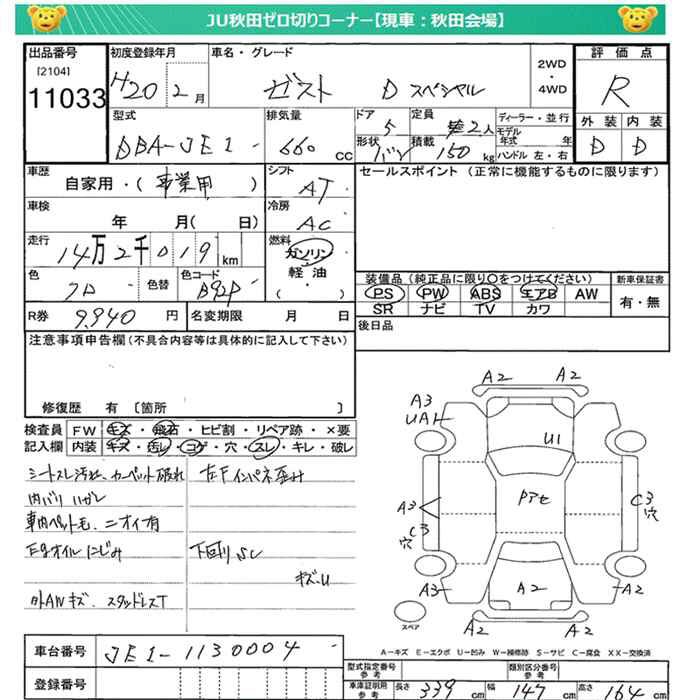 JU秋田ゼロ切りコーナー【現車：秋田会場】
出品番号
[2104]
11033
初度登録年月
H20 2月
車名・グレード
ゼスト D スペシャル
2WD
・
4WD
評価点
R
型式
DBA-JE1-
排気量
660 cc
ドア
5
定員
2人
ディーラー・並行
形状
バン
積載
150 kg
モデル年式 年
ハンドル 左・右
外装 内装
D D
車歴
自家用・( 事業用 )
シフト
AT
セールスポイント（正常に機能するものに限ります）
車検
年 月( 日)
冷房
AC
走行
14万2千019km
燃料
ガソリン
・
軽油
・
( )
色
色替
色コード
B92P
装備品（純正品に限り○をつけてください）
新車保証書
PS PW ABS エアB AW
SR ナビ TV カワ
有・無
R券 9,940 円
名変期限 月 日
後日品
注意事項申告欄(不具合内容等は具体的に記入して下さい)
修復歴 有〔箇所 〕
検査員
記入欄
FW キズ・飛石・ヒビ割・リペア跡・×要
内装 キズ・汚レ・コゲ・穴・スレ・キレ・破レ
シートスレ汚れ、カーペット破れ
左Fインパネ歪み
内バリハガレ
車内ペット毛、ニオイ有
Egオイルにじみ
下回り SC
キズ.U
外AWキズ. スタッドレスT
A2 A2
A3
UA1
U1
Pアセ
A3
C3
穴
C3
穴
A3
A2
A2
A2
A2
スペア
A－キズ E－エクボ U－凹み W－補修跡 S－サビ C－腐食 XX－交換済
車台番号 JE1-1130004
登録番号
型式指定番号
参考
類別区分番号
参考
車庫証明用
参考
長さ 339 cm
幅 147 cm
高さ 164 cm